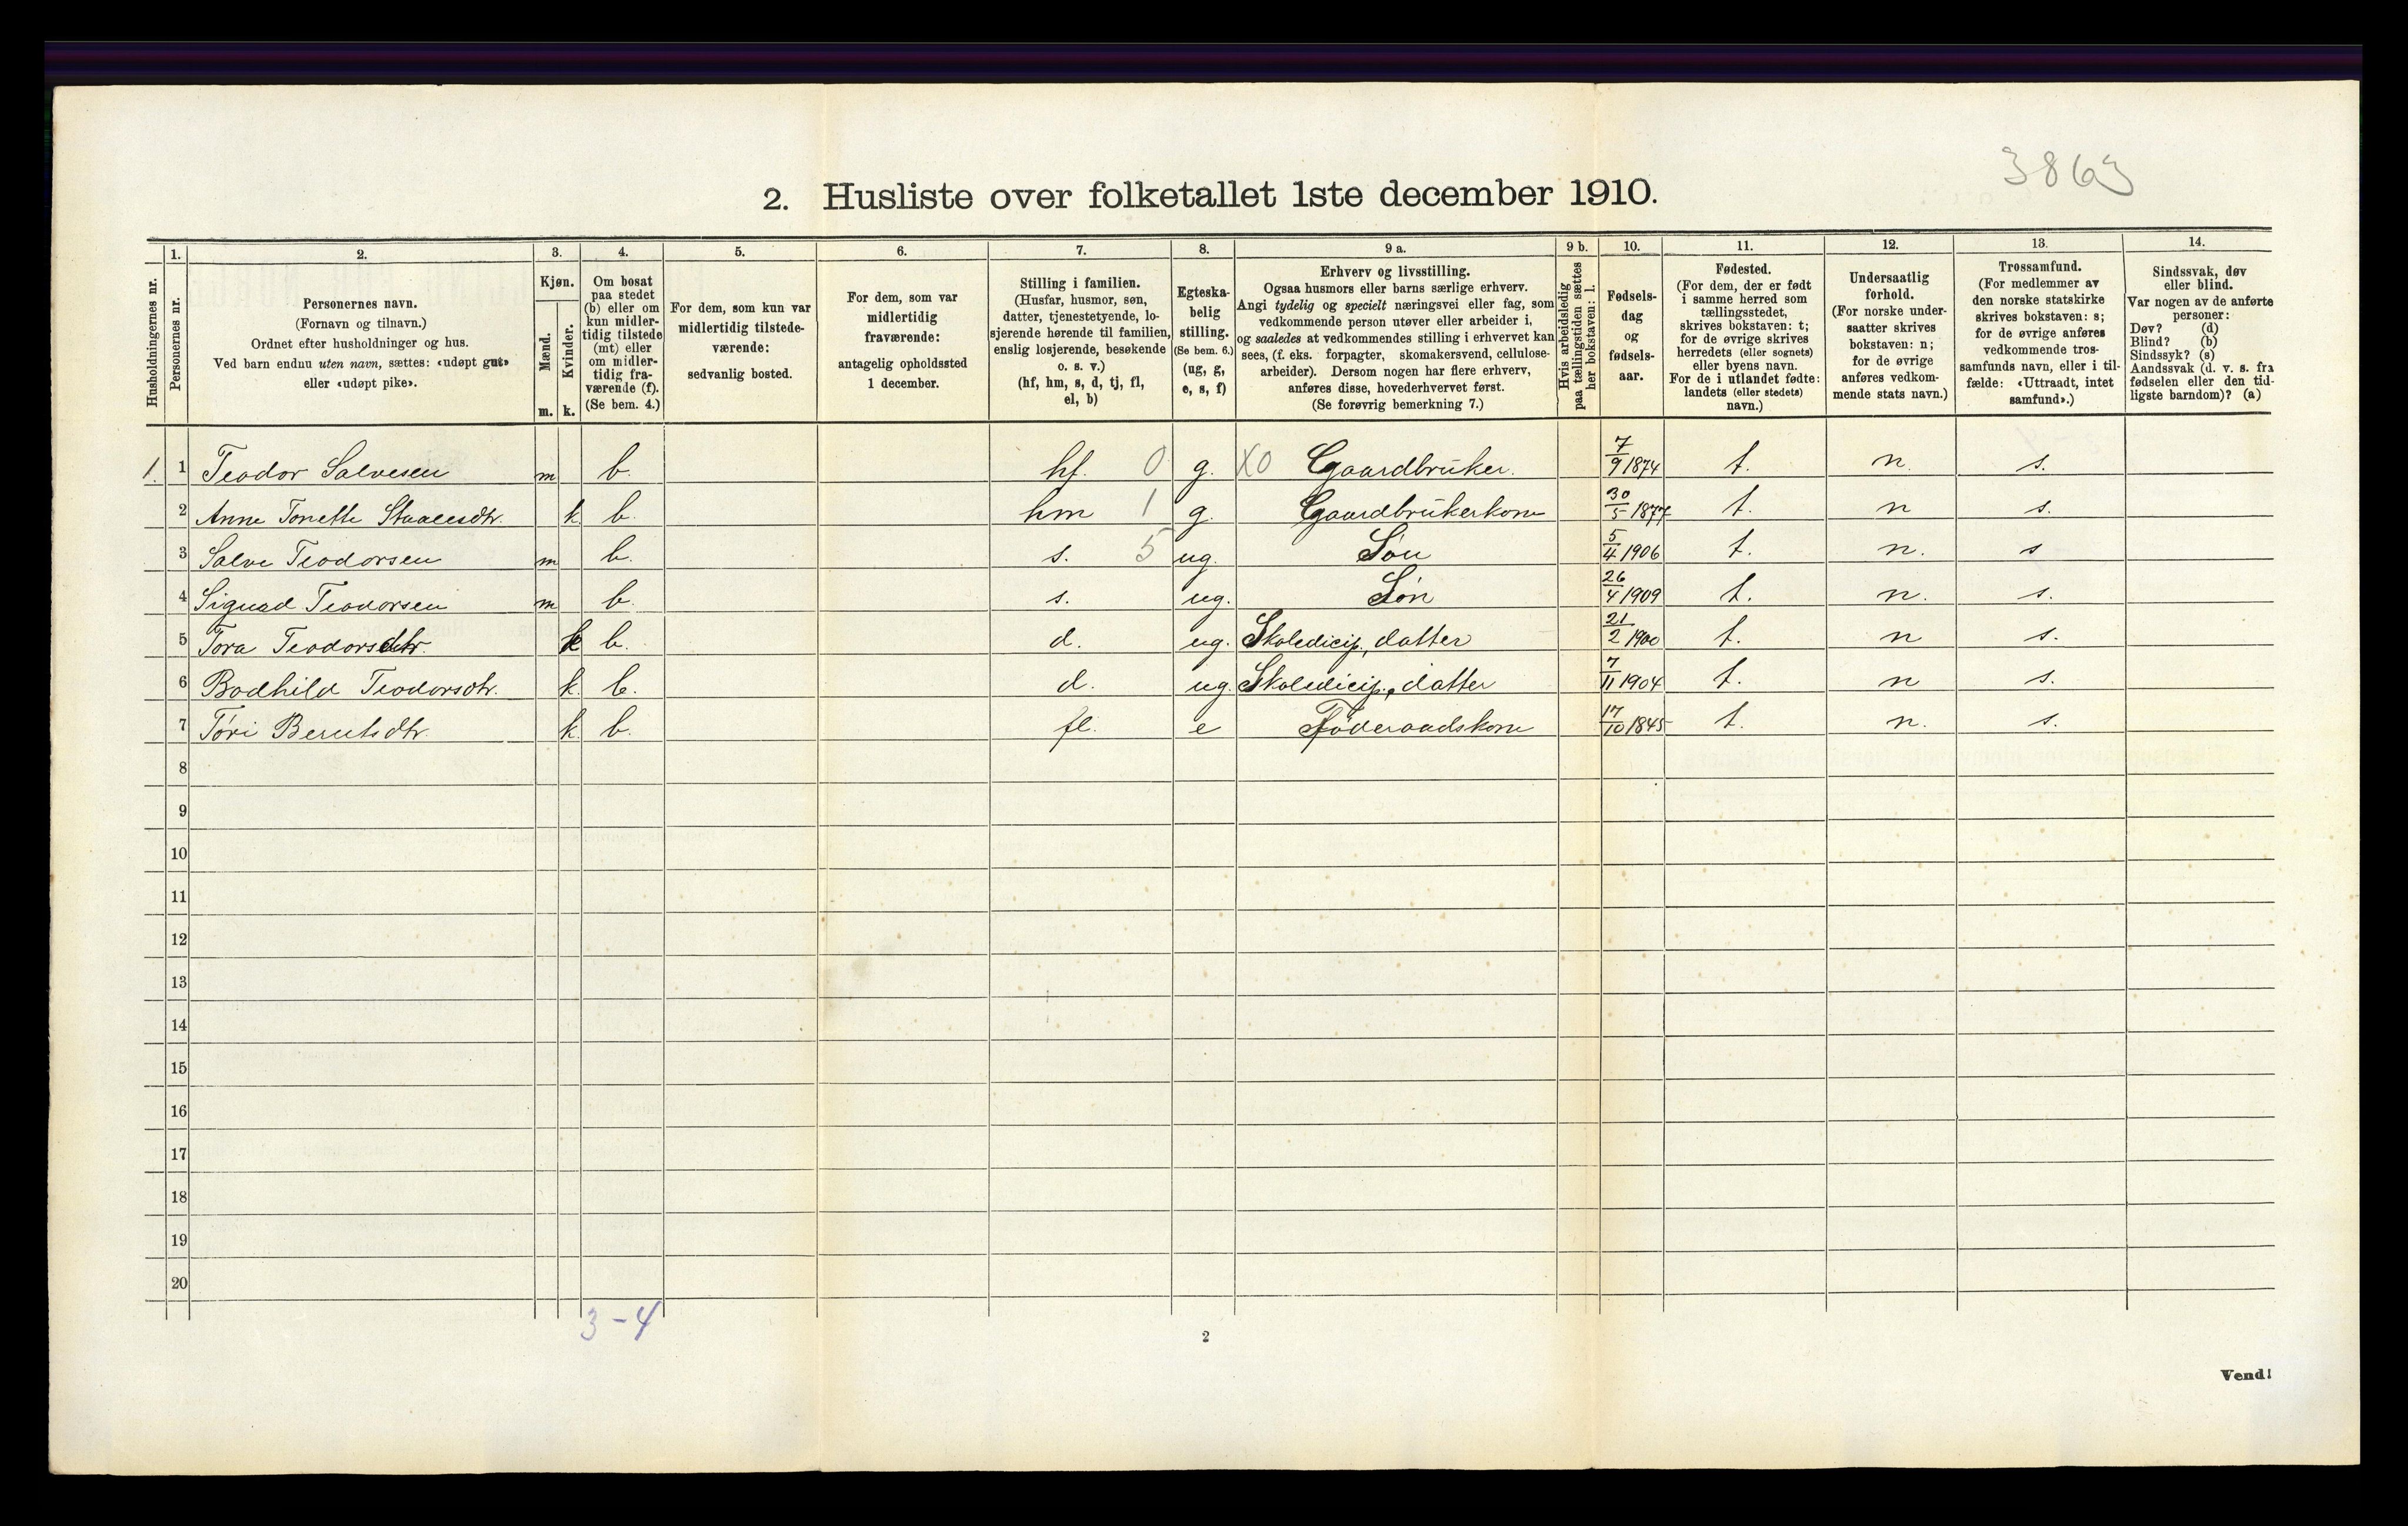 3863
2. Husliste over folketallet 1ste december 1910.
Husholdningernes nr.
1.
Personernes nr.
2.
Personernes navn.
(Fornavn og tilnavn.)
Ordnet efter husholdninger og hus.
Ved barn endnu uten navn, sættes: «udøpt gut»
eller «udøpt pike».
3.
Kjøn.
Mænd.
m.
Kvinder.
k.
4.
Om bosat
paa stedet
(b) eller om
kun midler-
tidig tilstede
(mt) eller
om midler-
tidig fra-
værende (f).
(Se bem. 4.)
5.
For dem, som kun var
midlertidig tilstede-
værende:
sedvanlig bosted.
6.
For dem, som var
midlertidig
fraværende:
antagelig opholdssted
1 december.
7.
Stilling i familien.
(Husfar, husmor, søn,
datter, tjenestetyende, lo-
sjerende hørende til familien,
enslig losjerende, besøkende
o. s. v.)
(hf, hm, s, d, tj, fl,
el, b)
8.
Egteska-
belig
stilling.
(Se bem. 6.)
(ug, g,
e, s, f)
9 a.
Erhverv og livsstilling.
Ogsaa husmors eller barns særlige erhverv.
Angi tydelig og specielt næringsvei eller fag, som
vedkommende person utøver eller arbeider i,
og saaledes at vedkommendes stilling i erhvervet kan
sees, (f. eks. forpagter, skomakersvend, cellulose-
arbeider). Dersom nogen har flere erhverv,
anføres disse, hovederhvervet først.
(Se forøvrig bemerkning 7.)
9 b.
Hvis arbeidsledig
paa tællingstiden sættes
her bokstaven: l.
10.
Fødsels-
dag
og
fødsels-
aar.
11.
Fødested.
(For dem, der er født
i samme herred som
tællingsstedet,
skrives bokstaven: t;
for de øvrige skrives
herredets (eller sognets)
eller byens navn.
For de i utlandet fødte:
landets (eller stedets)
navn.)
12.
Undersaatlig
forhold.
(For norske under-
saatter skrives
bokstaven: n;
for de øvrige
anføres vedkom-
mende stats navn.)
13.
Trossamfund.
(For medlemmer av
den norske statskirke
skrives bokstaven: s;
for de øvrige anføres
vedkommende tros-
samfunds navn, eller i til-
fælde: «Uttraadt, intet
samfund».)
14.
Sindssvak, døv
eller blind.
Var nogen av de anførte
personer:
Døv? (d)
Blind? (b)
Sindssyk? (s)
Aandssvak (d. v. s. fra
fødselen eller den tid-
ligste barndom)? (a)
1. 1 Teodor Salvesen m b. hf. 0 g. X0 Gaardbruker. 7/9 1874 t. n. s.
2 Anne Tonette Staalesdtr. k b. hm 1 g. Gaardbrukerkone 30/5 1877 t. n s.
3 Salve Teodorsen m b. s. 5 ug. Søn 5/4 1906 t. n. s
4 Sigurd Teodorsen m b. s. ug. Søn 26/4 1909 t. n. s.
5 Tora Teodorsdtr. k b. d. ug. Skoledicip, datter 21/2 1900 t. n s.
6 Bodhild Teodorsdtr. k. b. d. ug. Skoledicip., datter 7/11 1904 t. n s.
7 Tøri Berntsdtr. k. b. fl. e Føderaadskone 17/10 1845 t. n. s.
8
9
10
11
12
13
14
15
16
17
18
19
20
3-4
2
Vend!